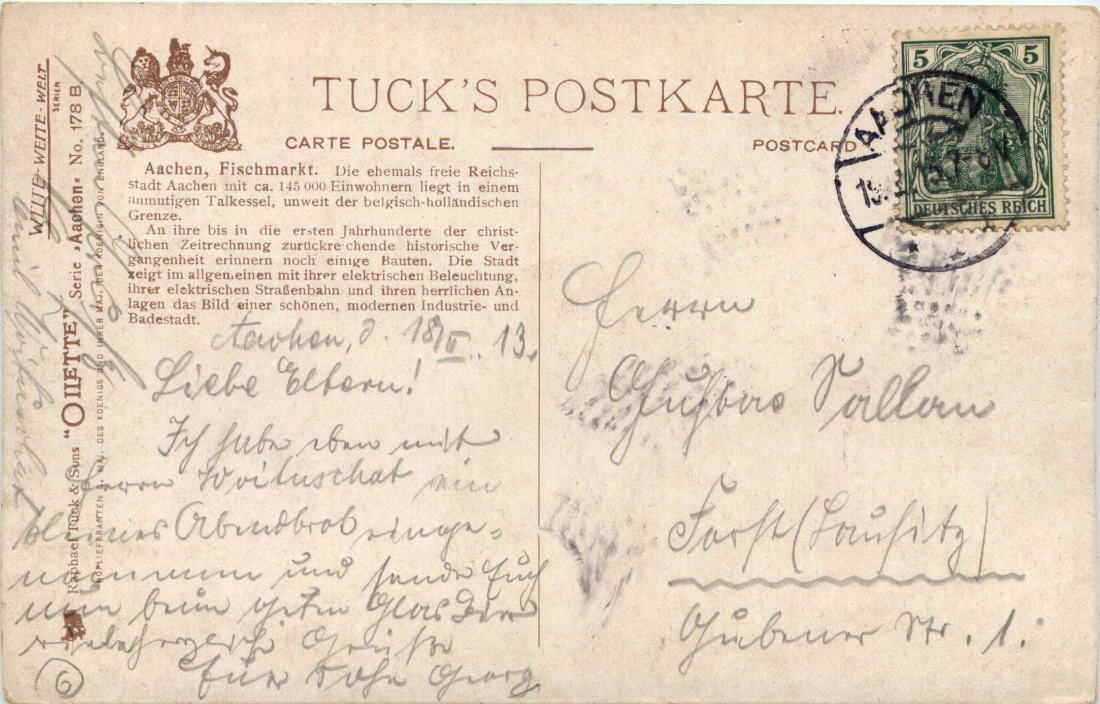 TUCK'S POSTKARTE.
CARTE POSTALE.
POSTCARD
Aachen, Fischmarkt. Die ehemals freie Reichs-
stadt Aachen mit ca. 145 000 Einwohnern liegt in einem
anmutigen Talkessel, unweit der belgisch-holländischen
Grenze.
An ihre bis in die ersten Jahrhunderte der christ-
lichen Zeitrechnung zurückre chende historische Ver-
gangenheit erinnern noch einige Bauten. Die Stadt
zeigt im allgemeinen mit ihrer elektrischen Beleuchtung,
ihrer elektrischen Straßenbahn und ihren herrlichen An-
lagen das Bild einer schönen, modernen Industrie- und
Badestadt.
Aachen, d. 18/II. 13.
Liebe Eltern!
Ich habe eben mit
Herrn Woituschat ein
kleines Abendbrot einge-
nommen und sende Euch
nun beim guten Glas Bier
viele herzliche Grüße
Euer Sohn Georg
Herrn
Gustav Sallan
Forst (Lausitz)
Gubener Str. 1.
5 5
DEUTSCHES REICH
AACHEN
WEITE-WEITE-WELT
SERIEN
Raphael Tuck & Sons "OILETTE" Serie „Aachen" No. 178 B.
HOFLIEFERANTEN S. MAJ. DES KOENIGS UND IHRER MAJ. DER KOENIGIN VON ENGLAND.
Emil Woituschat
6